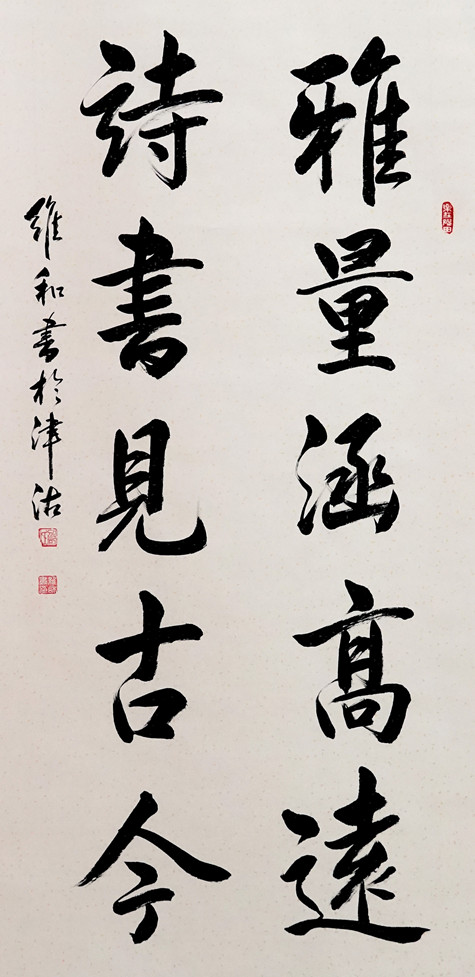 雅量涵高遠
詩書見古今
維和書於津沽